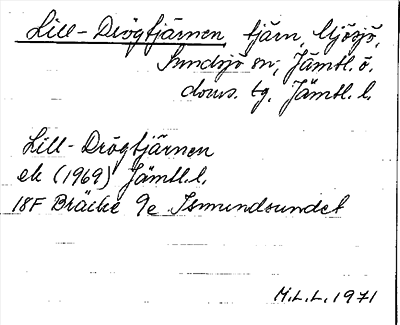 Lill-Drögtjärnen, tjärn, Mjösjö,
Sundsjö sn, Jämtl. ö.
doms. tg, Jämtl. l.
Lill-Drögtjärnen
ek (1969) Jämtl.l.
18F Bräcke 9e Ismundsundet
M.L.L. 1971